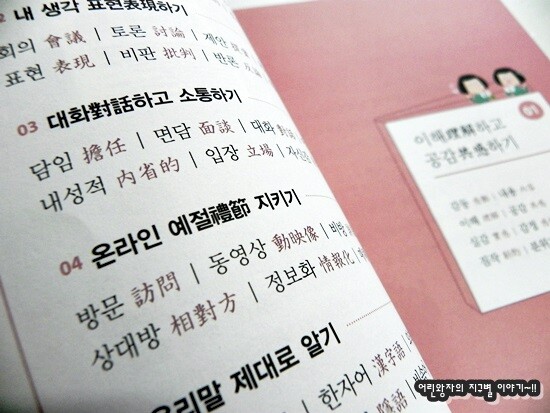 내 생각 표현表現하기
회의 會議 | 토론 討論 | 제안
표현 表現 | 비판 批判 | 반론
03 대화對話하고 소통하기
담임 擔任 | 면담 面談 | 대화 對話
내성적 內省的 | 입장 立場 |
04 온라인 예절禮節 지키기
방문 訪問 | 동영상 動映像 | 비방
상대방 相對方 | 정보화 情報化 |
우리말 제대로 알기
| 한자어 漢字語 |
01
이해理解하고
공감共感하기
감동 | 내용
이해 理解 | 공감
실감 | 감정
어린왕자의 지구별 이야기~!!